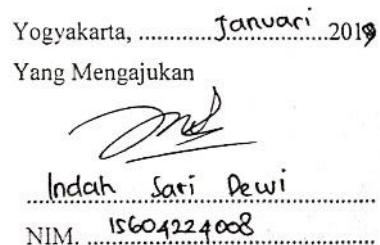 Yogyakarta, ............Januari............2019
Yang Mengajukan
Indah Sari Dewi
NIM. 15604224008